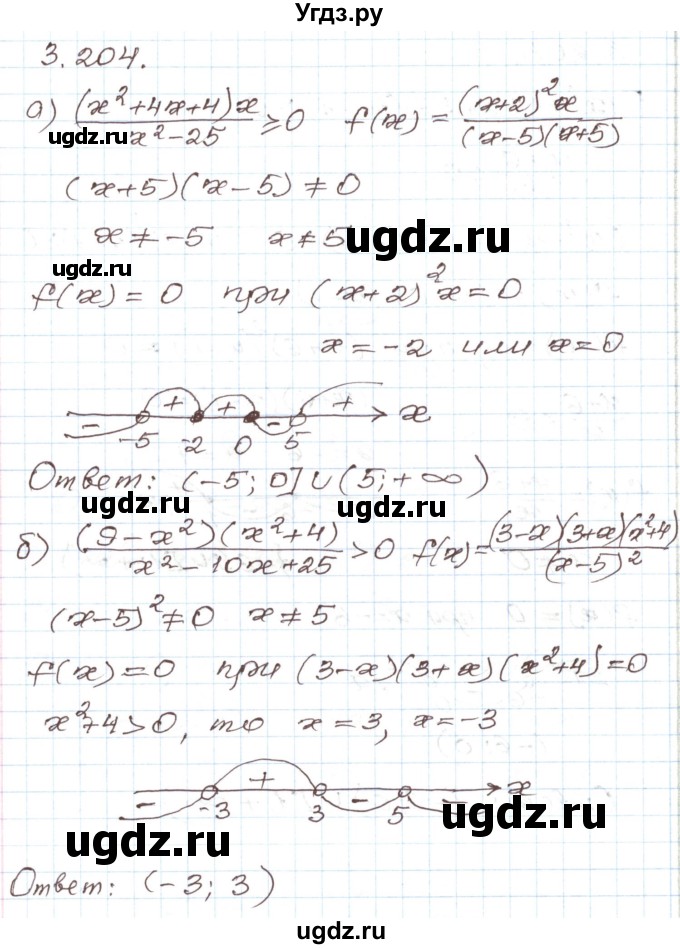 Угдз.ру
3.204.
а) (x²+4x+4)x / x²-25 ≥0 f(x) = (x+2)²x / (x-5)(x+5)
ugdz.ru
(x+5)(x-5) ≠ 0
x ≠ -5 x ≠ 5
ugdz.ru
ugdz.ru
f(x) = 0 при (x+2)²x = 0
x = -2 или x = 0
- + + - + x
-5 -2 0 5
Ответ: (-5; 0] ∪ (5; +∞)
б) (9-x²)(x²+4) / x²-10x+25 >0 f(x) = (3-x)(3+x)(x²+4) / (x-5)²
(x-5)² ≠ 0 x ≠ 5
f(x) = 0 при (3-x)(3+x)(x²+4) = 0
x²+4>0, то x = 3, x = -3
- + - - x
-3 3 5
ugdz.ru
ugdz.ru
Ответ: (-3; 3)
ugdz.ru